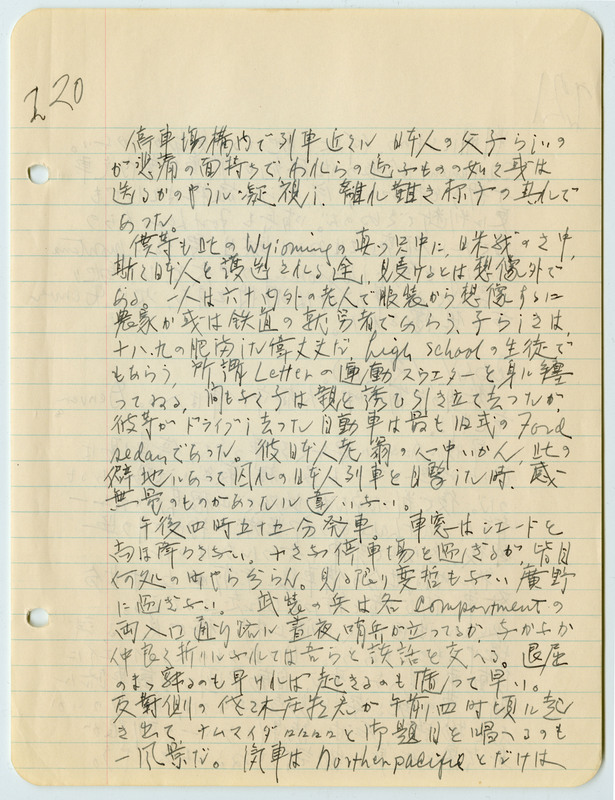 220
停車場構内で列車近くに 日本人の父子らしいの
が悲痛の面持ちで、われらの近しきものの如く或は
送るかのやうに凝視し、離れ難き様子の真れで
あった。
僕等も此のWyiomingの真っ只中に、日米戦のさ中、
斯く日本人を護送される途、見受けるとは想像外で
ある。一人は六十内外の老人で服装から想像するに
農家か或は鉄道の就労者であらう、子らしきは、
十八、九の肥満した偉丈夫だ、high schoolの生徒で
もあらう、所謂Letterの運動スウエターを身に纏
つてゐる、間もなく子は親を誘ひ引き立て去つたが
彼等がドライブし去つた自動車は最も旧式のFord
sedanであった。彼日本人老翁の心中いかん、此の
僻地にあって囚れの日本人列車を目撃した時、感
無量のものがあったに違いない。
午後四時五十五分発車。 車窓はシエードを
尚ほ降らさない。 小さな停車場を過ぎるが、皆目
何処の町やら分らん。見る限り変哲もない、廣野
に過ぎない。 武装の兵は各compartmentの
両入口通り路に昼夜哨兵が立ってるが、なかなか
仲良く折りにふれては吾らと談話を交へる。退屈
のまゝ寝るのも早ければ起きるのも偖って早い。
反対側の佐々木庄 が午前四時頃に起
き出て、ナムマイダとお題目を唱へるのも
一風景だ。 汽車はNorthenpacificとだけは